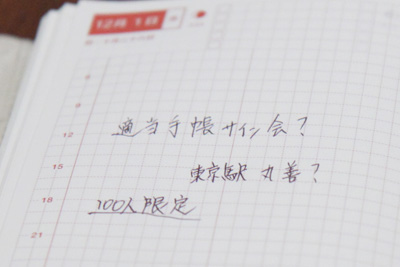 12月1日
9
12
適当手帳サイン会?
15
東京駅 丸善?
18
100人限定
21